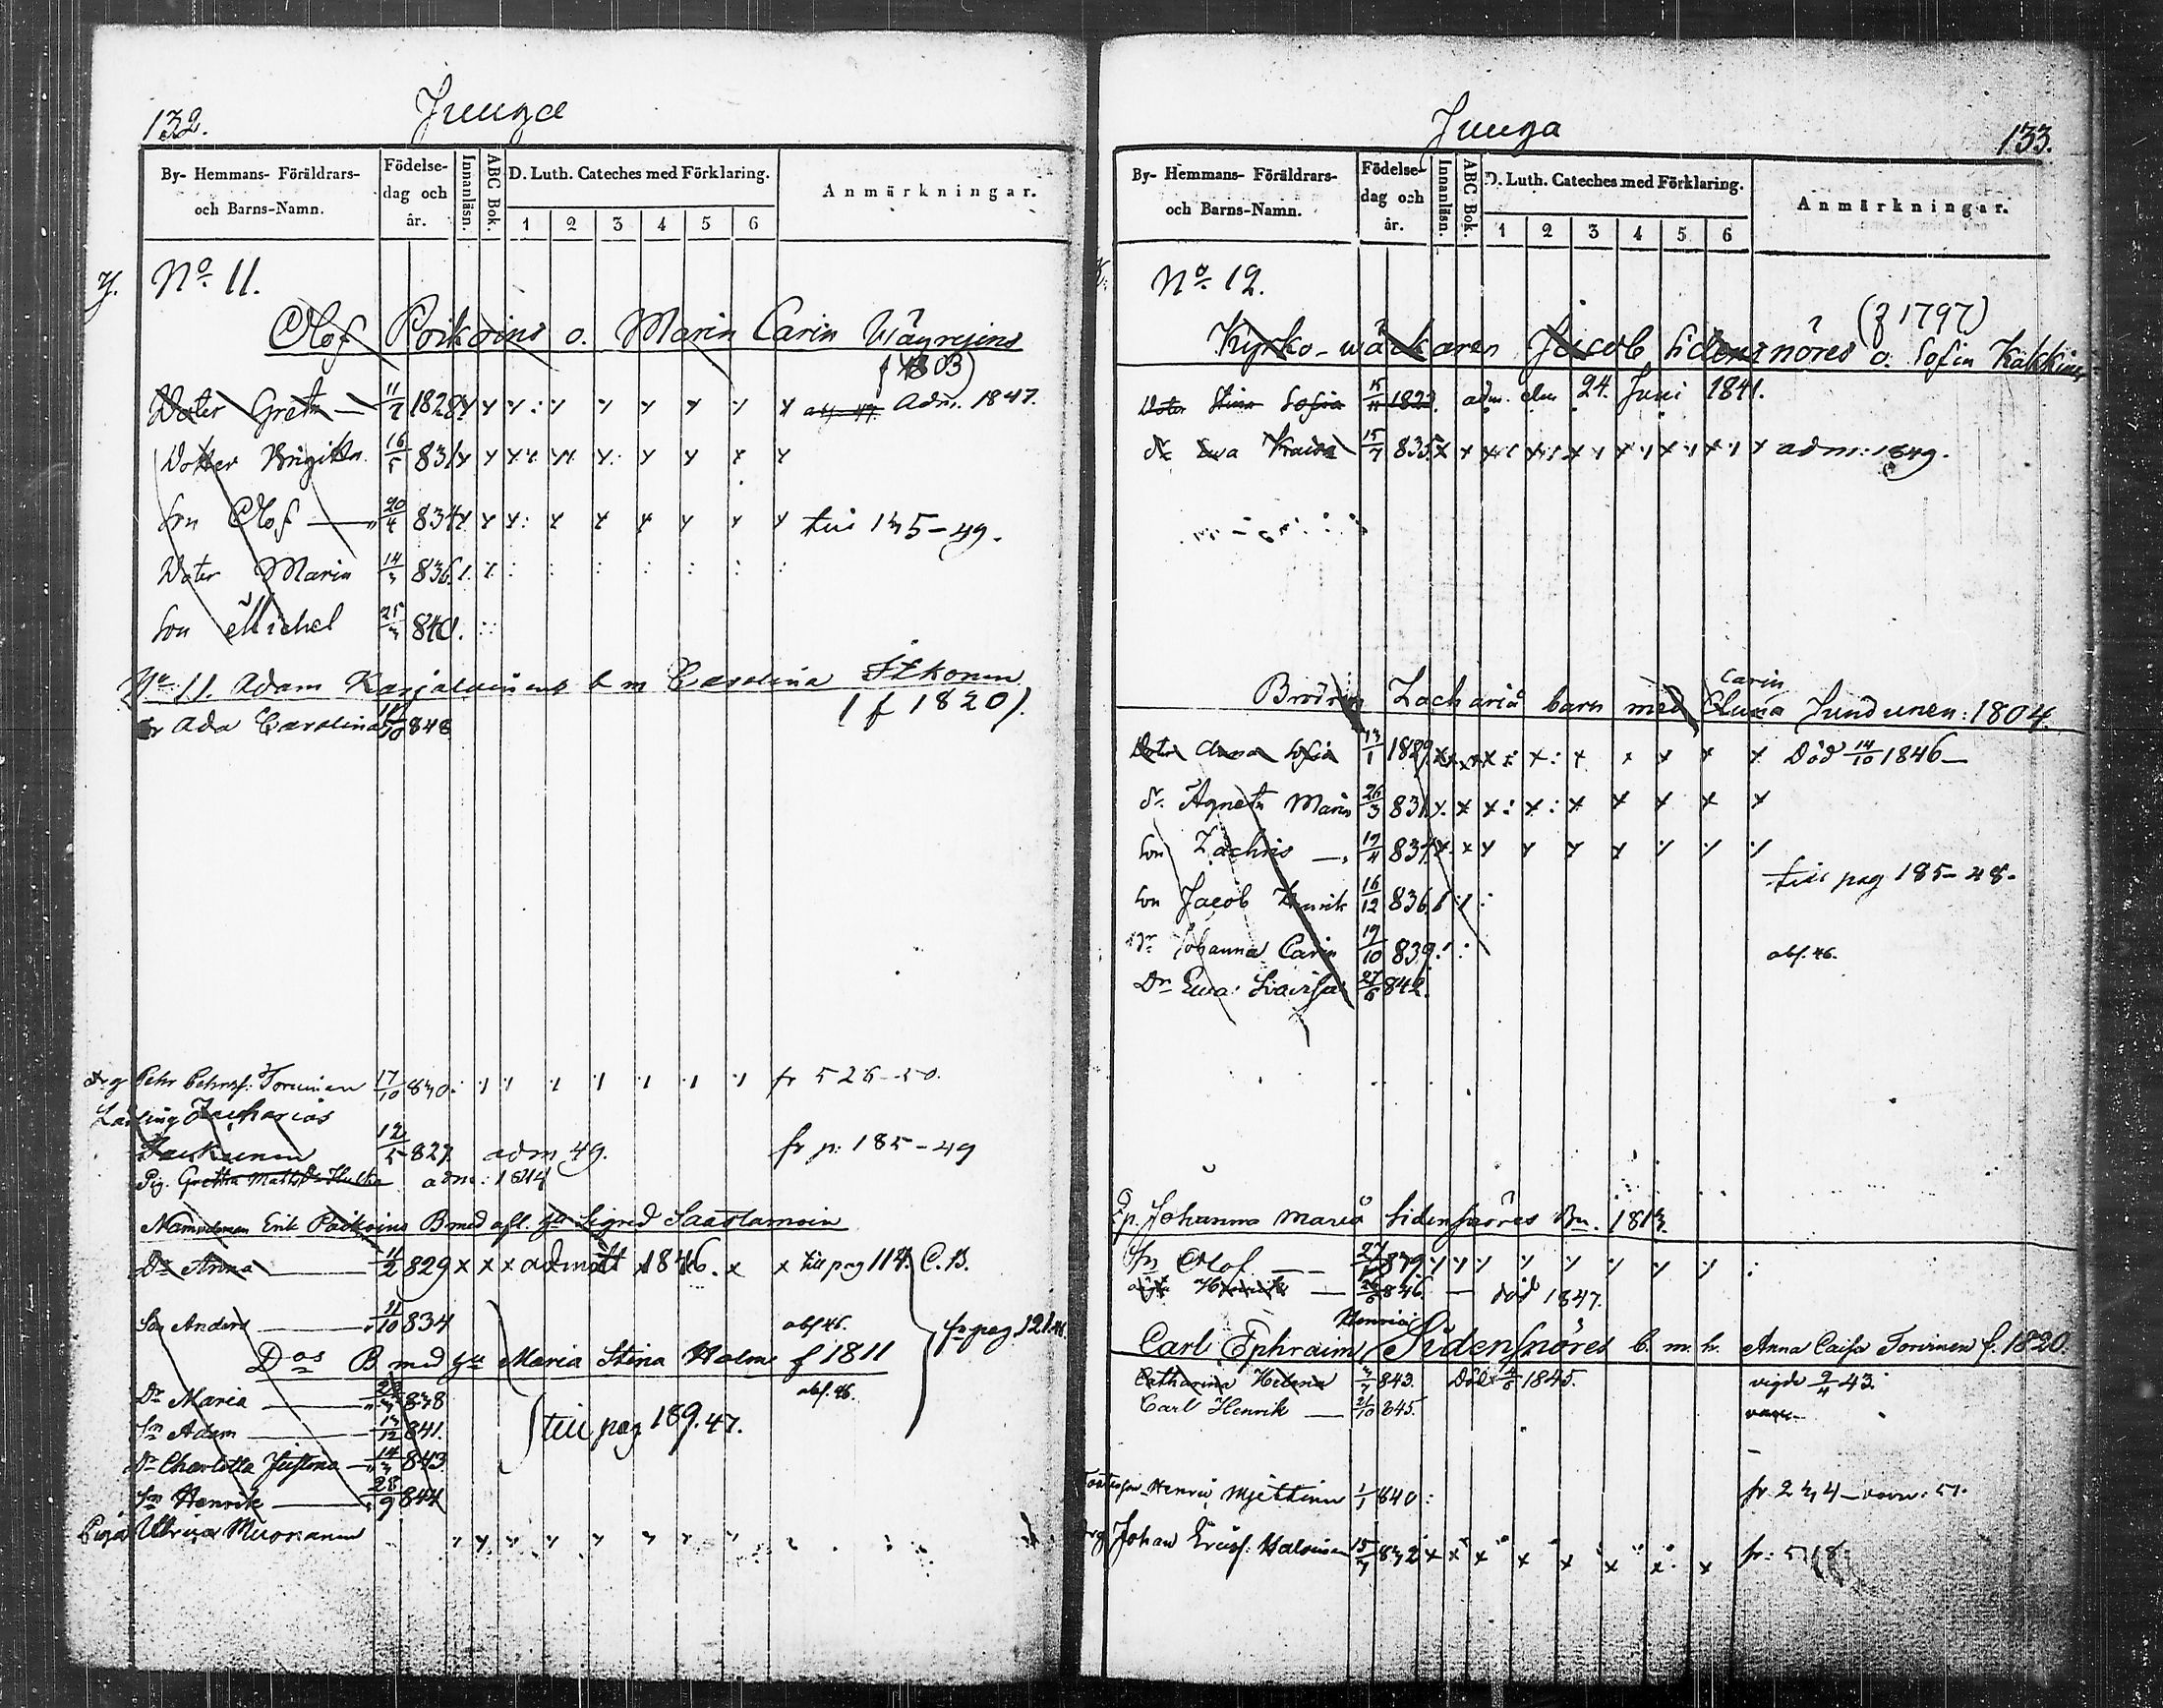 132.
Juuga
By- Hemmans- Föräldrars- och Barns-Namn.
Födelse-dag och år.
Innanläsn.
ABC Bok.
D. Luth. Cateches med Förklaring.
1 2 3 4 5 6
Anmärkningar.
No 11.
Olof Poikoins o. Maria Carin Wäyrejins
f 1803)
Doter Greta 11/7 1828 Adm. 1847.
Dotter Brigitta 16/5 831
Son Olof 20/4 834 till 135-49.
Doter Maria 14/3 836
Son Michel 25/3 840.
No 11. Adam Karjalainens b m Carolina Itkonen
( f 1820).
Dr Ada Carolina 11/10 848
Drg Pehr Pehrss: Torvinen 17/10 830. fr 526-50.
Zacharias
12/5 827. adm 49. fr p: 185-49
Pig. Gretha Matts Dr Hulka adm: 1844
Erik Poikoins B med afl. Hu Sigred Saastamoin
Dr Anna 11/2 829 x x x admitt 1846. x x till pag 114. C. B.
Son Anders 11/10 834 abs 46. fr pag 121
Dos B med Hu Maria Stina Holm f 1811
Dr Maria 838 abs. 46.
Sn Adam 13/12 841. till pag 189.47.
Dr Charlotta Justina 14/3 843
Sn Henrik 28/9 844
Piga Ulrica Muoranen
Juuga
133.
By- Hemmans- Föräldrars- och Barns-Namn.
Födelse-dag och år.
Innanläsn.
ABC Bok.
D. Luth. Cateches med Förklaring.
1 2 3 4 5 6
Anmärkningar.
No 12.
(f 1797)
Kyrko-wäkaren Jacob Sidensnöres o. Sofia Kakkin
Doter Stina Sofia 15/11 1823. adm. den 24. Juni 1841.
dr Ewa Kraisa 15/7 835 adm: 1849.
Carin
Brodren Zachariä barn med Jundunen: 1804.
Doter Anna Sofia 13/1 1829 Död 14/10 1846
dr Agneta Maria 26/3 831
Son Zachris 19/4 834
till pag 185-48.
Son Jacob Henrik 16/12 836
Dr Johanna Carin 19/10 839 abs. 46.
Dr Ewa: Lovisa 27/6 842.
Johanna Maria Sidensnöres Bn. 1813.
Sn Olof 839
Henrik 846. död 1847.
Henrici
Carl Ephraim Sidensnöres b. m. h. Anna Caisa Torvinen f. 1820.
Catharina Helena 3/7 843. Död 4/6 1845. vigde 2/4 43.
Carl Henrik 21/10 845.
Henric Mjettinen 1/1 840 fr. 234
Drg Johan Ericss: Halonen 15/7 832 fr: 518